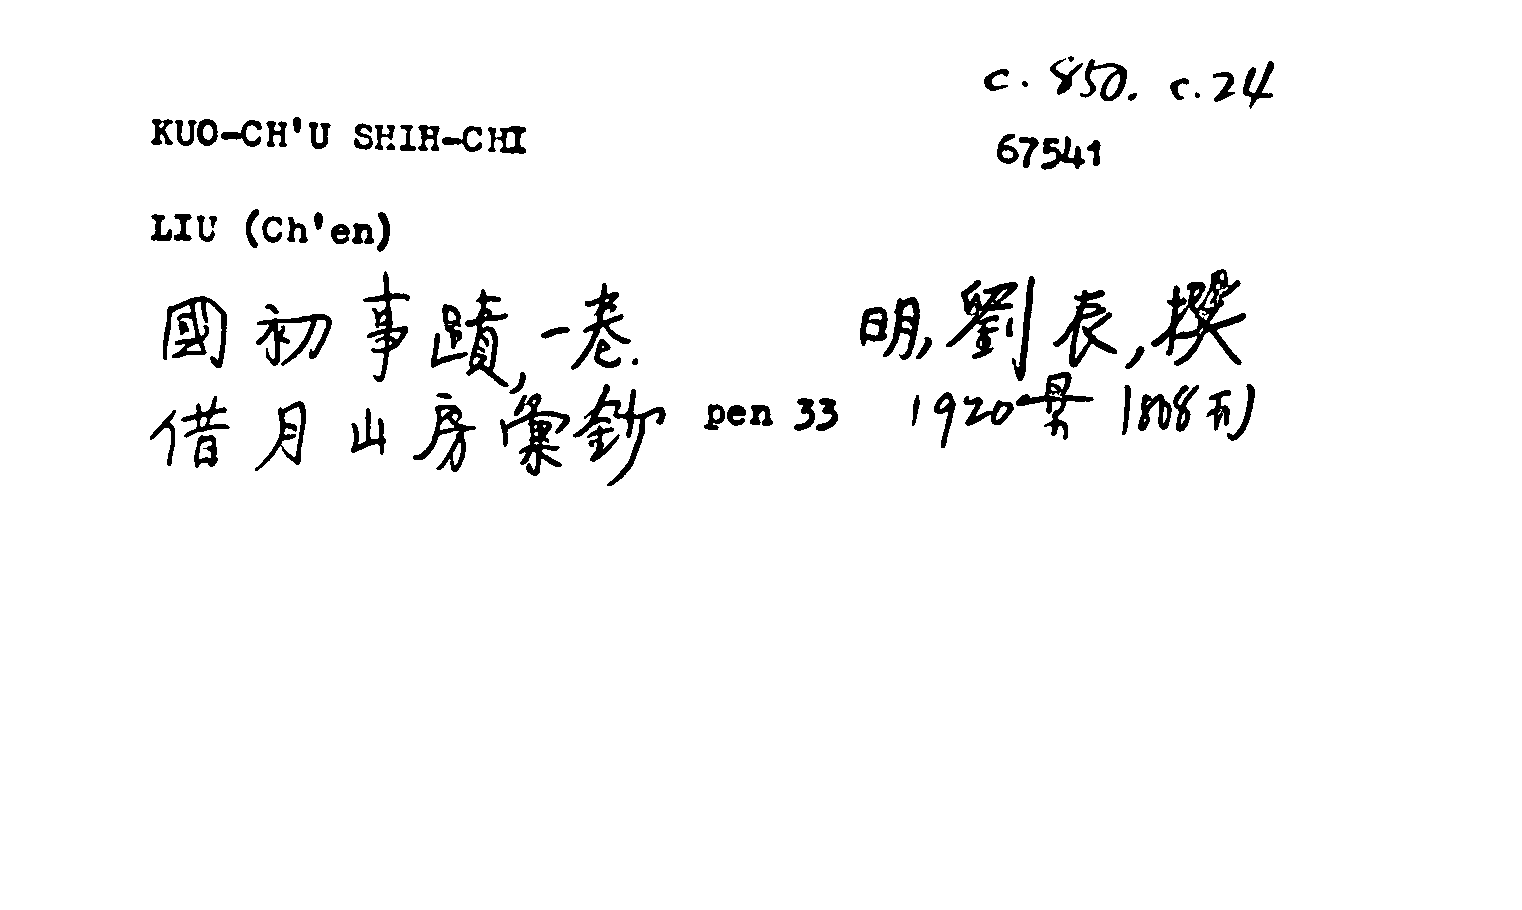 c. 850. c.24
KUO-CH'U SHIH-CHI
67541
LIU (Ch'en)
國初事蹟, 一卷. 明, 劉辰, 撰
借月山房彙鈔 pen 33 1920景 1808刊